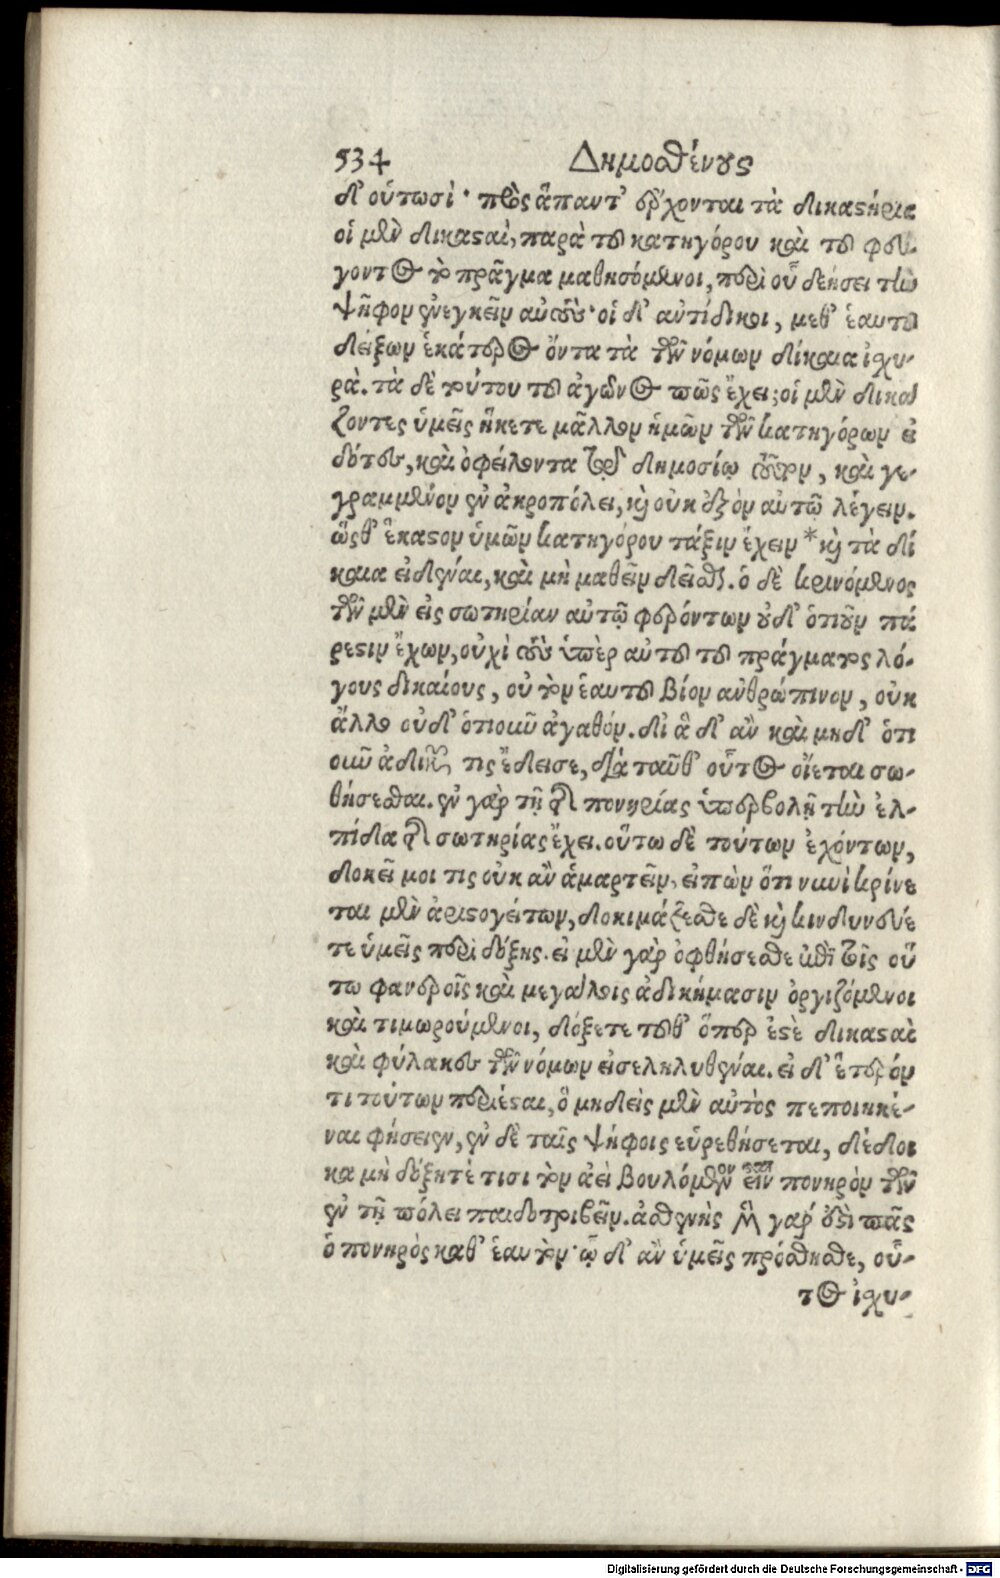 534 Δημοσθένους
δ' οὑτωσὶ· πρὸς ἅπαντ' ἔρχονται τὰ δικαστήρια
οἱ μὲν δικασταὶ, παρὰ τοῦ κατηγόρου καὶ τοῦ φεύ
γοντος τὸ πρᾶγμα μαθησόμενοι, περὶ οὗ δεήσει τὴν
ψῆφον ἐνεγκεῖν αὐτούς· οἱ δ' ἀντίδικοι, μεθ' ἑαυτοῦ
δείξων ἑκάτερος ὄντα τὰ τῶν νόμων δίκαια ἰσχυ-
ρά. τὰ δὲ τούτου τοῦ ἀγῶνος πῶς ἔχει; οἱ μὲν δικά
ζοντες ὑμεῖς ἥκετε μᾶλλον ἡμῶν τῶν κατηγόρων εἰ
δότες, καὶ ὀφείλοντα τῷ δημοσίῳ τοῦτον, καὶ γε-
γραμμένον ἐν ἀκροπόλει, καὶ οὐκ ἐξὸν αὐτῷ λέγειν.
ὥσθ' ἕκαστον ὑμῶν κατηγόρου τάξιν ἔχειν * καὶ τὰ δί
καια εἰδέναι, καὶ μὴ μαθεῖν δεῖσθαι. ὁ δὲ κρινόμενος
τῶν μὲν εἰς σωτηρίαν αὐτῷ φερόντων οὐδ' ὁτιοῦν πά
ρεστιν ἔχων, οὐχὶ τοὺς ὑπὲρ αὐτοῦ τοῦ πράγματος λό-
γους δικαίους, οὐ τὸν ἑαυτοῦ βίον ἀνθρώπινον, οὐκ
ἄλλο οὐδ' ὁτιοῦν ἀγαθόν. δι' ἃ δ' ἂν καὶ μηδ' ὁτι
οῦν ἀδικῶν τις ἔδεισε, διὰ ταῦθ' οὗτος οἴεται σω-
θήσεσθαι. ἐν γὰρ τῇ τῆς πονηρίας ὑπερβολῇ τὴν ἐλ-
πίδα τῆς σωτηρίας ἔχει. οὕτω δὲ τούτων ἐχόντων,
δοκεῖ μοι τις οὐκ ἂν ἁμαρτεῖν, εἰπὼν ὅτι νυνὶ κρίνε
ται μὲν ἀριστογείτων, δοκιμάζεσθε δὲ καὶ κινδυνεύε
τε ὑμεῖς περὶ δόξης. εἰ μὲν γὰρ ὀφθήσεσθε ἐπὶ τοῖς οὕ
τω φανεροῖς καὶ μεγάλοις ἀδικήμασιν ὀργιζόμενοι
καὶ τιμωρούμενοι, δόξετε τοῦθ' ὅπερ ἐστὲ δικασταὶ
καὶ φύλακες τῶν νόμων εἰσεληλυθέναι. εἰ δ' ἕτερόν
τι τούτων περιέσται, ὃ μηδεὶς μὲν αὐτὸς πεποιηκέ-
ναι φήσειεν, ἐν δὲ ταῖς ψήφοις εὑρεθήσεται, δέδοι
κα μὴ δόξητέ τισι τὸν ἀεὶ βουλόμενον εἶναι πονηρὸν τῶν
ἐν τῇ πόλει παιδοτριβεῖν. ἀσθενὴς μὲν γάρ ἐστι πᾶς
ὁ πονηρὸς καθ' ἑαυτόν· ᾧ δ' ἂν ὑμεῖς πρόσθησθε, οὗ-
τος ἰσχυ-
Digitalisierung gefördert durch die Deutsche Forschungsgemeinschaft - DFG